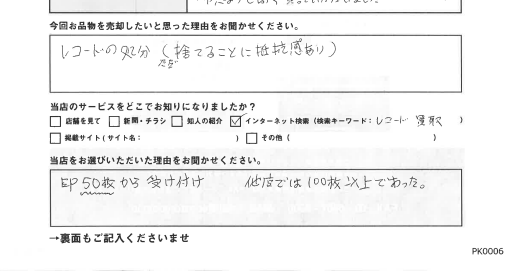 今回お品物を売却したいと思った理由をお聞かせください。
レコードの処分 (捨てることに抵抗感あり)
ただ
当店のサービスをどこでお知りになりましたか?
□店舗を見て □新聞・チラシ □知人の紹介 ☑インターネット検索 (検索キーワード: レコード 買取 )
□掲載サイト (サイト名: ) □その他 ( )
当店をお選びいただいた理由をお聞かせください。
EP 50枚から受け付け 他店では100枚以上であった。
→裏面もご記入くださいませ
PK0006